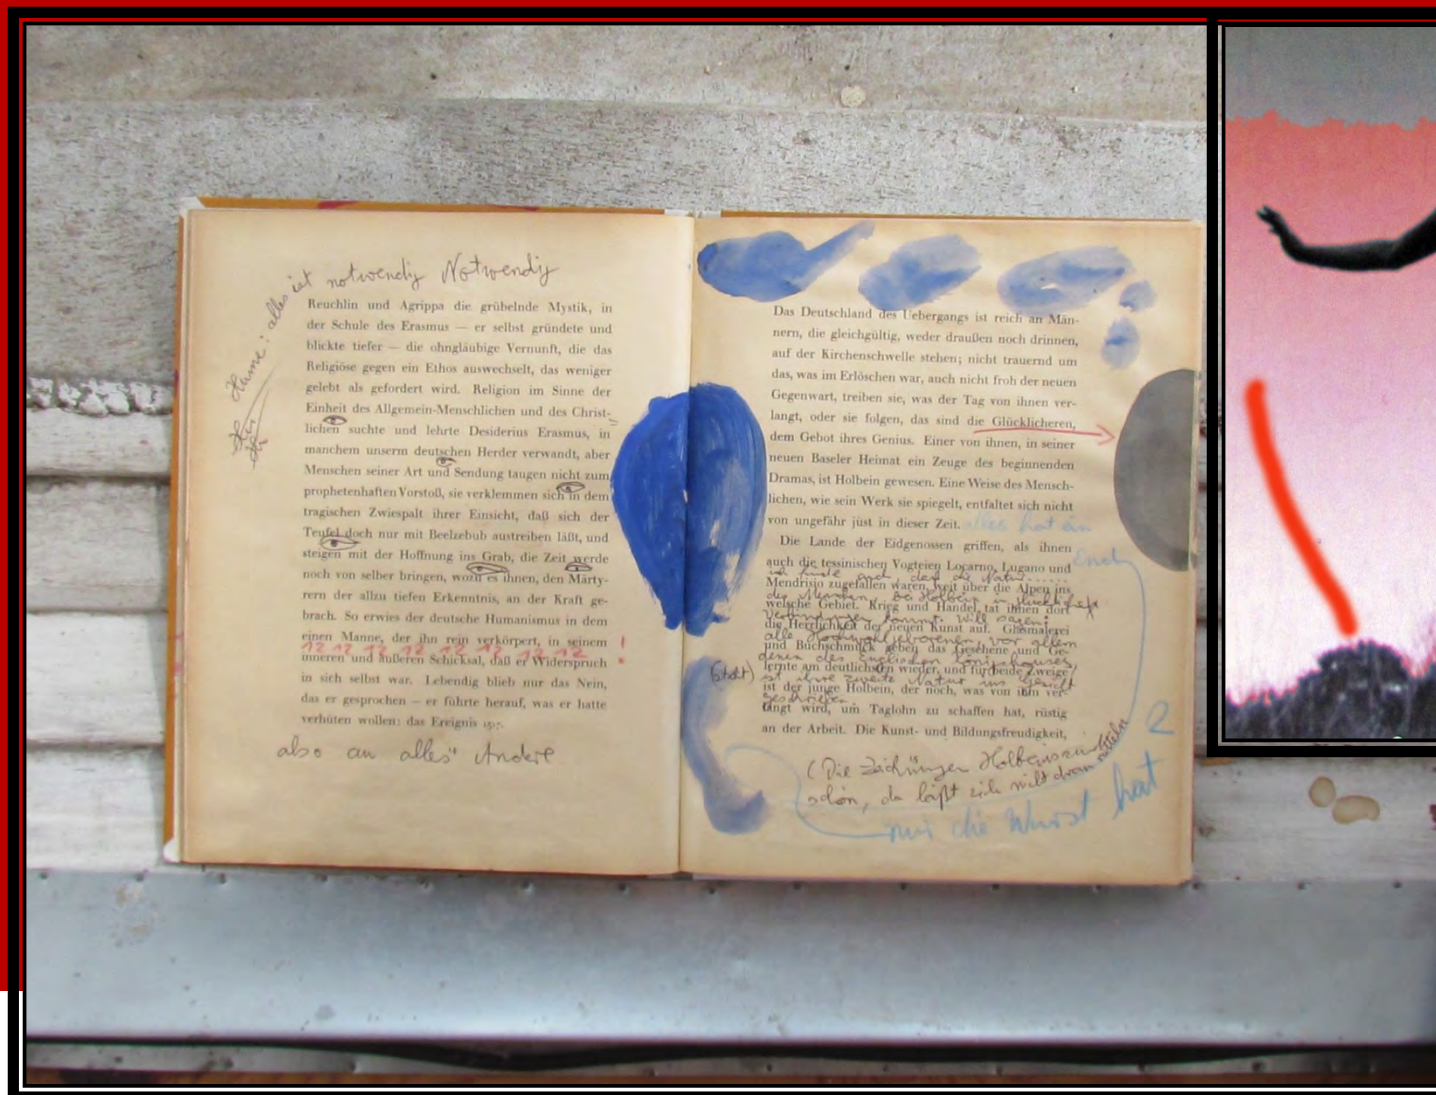 alles ist notwendig Notwendig
Hume:
Reuchlin und Agrippa die grübelnde Mystik, in
der Schule des Erasmus — er selbst gründete und
blickte tiefer — die ohngläubige Vernunft, die das
Religiöse gegen ein Ethos auswechselt, das weniger
gelebt als gefordert wird. Religion im Sinne der
Einheit des Allgemein-Menschlichen und des Christ-
lichen suchte und lehrte Desiderius Erasmus, in
manchem unserm deutschen Herder verwandt, aber
Menschen seiner Art und Sendung taugen nicht zum
prophetenhaften Vorstoß, sie verklemmen sich in dem
tragischen Zwiespalt ihrer Einsicht, daß sich der
Teufel doch nur mit Beelzebub austreiben läßt, und
steigen mit der Hoffnung ins Grab, die Zeit werde
noch von selber bringen, wozu es ihnen, den Märty-
rern der allzu tiefen Erkenntnis, an der Kraft ge-
brach. So erwies der deutsche Humanismus in dem
einen Manne, der ihn rein verkörpert, in seinem !
12 12 12 12 12 12 12 12
inneren und äußeren Schicksal, daß er Widerspruch
in sich selbst war. Lebendig blieb nur das Nein,
das er gesprochen — er führte herauf, was er hatte
verhüten wollen: das Ereignis 1517.
also an alles" Andere
Das Deutschland des Uebergangs ist reich an Män-
nern, die gleichgültig, weder draußen noch drinnen,
auf der Kirchenschwelle stehen; nicht trauernd um
das, was im Erlöschen war, auch nicht froh der neuen
Gegenwart, treiben sie, was der Tag von ihnen ver-
langt, oder sie folgen, das sind die Glücklicheren,
dem Gebot ihres Genius. Einer von ihnen, in seiner
neuen Baseler Heimat ein Zeuge des beginnenden
Dramas, ist Holbein gewesen. Eine Weise des Mensch-
lichen, wie sein Werk sie spiegelt, entfaltet sich nicht
von ungefähr just in dieser Zeit. alles hat ein
End
Die Lande der Eidgenossen griffen, als ihnen
auch die tessinischen Vogteien Locarno, Lugano und
ich finde auch, daß die Natur......
Mendrisio zugefallen waren, weit über die Alpen ins
des Menschen, bei Holbein in
welsche Gebiet. Krieg und Handel tat ihnen dort
kommt. Will sagen:
die Herrlichkeit der neuen Kunst auf. Glasmalerei
alle Hochwohlgeborenen, vor allem
und Buchschmuck geben das Gesehene und Ge-
denen des Englischen Königshauses,
lernte am deutlichsten wieder, und für beide Zweige
(steht) ist ihre zweite Natur ins Gesicht
ist der junge Holbein, der noch, was von ihm ver-
geschrieben.
langt wird, um Taglohn zu schaffen hat, rüstig
an der Arbeit. Die Kunst- und Bildungsfreudigkeit,
(Die Zeichnungen Holbeins sind
schön, da läßt sich nicht dran rütteln
nur die Wurst hat 2